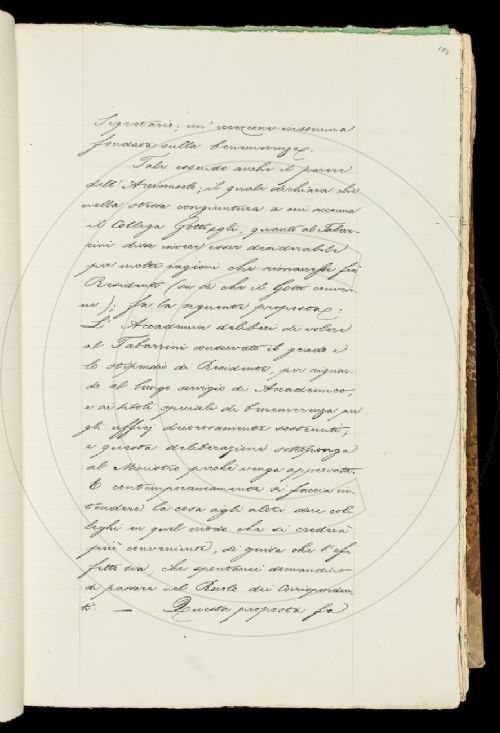 127
Segretario; un' eccezione insomma
fondata sulla benemerenza.
Tale essendo anche il parere
dell' Arciconsolo; il quale dichiara che
nella stessa congiuntura a cui accenna
il Collega Gotti, egli, quanto al Tabar-
rini disse invece esser desiderabile
per molte ragioni che rimanesse fra
Residenti (su di che il Gotti convie-
ne); fa la seguente proposta:
L' Accademia deliberi di volere
al Tabarrini conservato il grado e
lo stipendio di Residente, per riguar-
do al lungo servigio di Accademico,
e ai titoli speciali di benemerenza per
gli uffizj decorosamente sostenuti;
e questa deliberazione sottoponga
al Ministro perchè venga approvata.
E contemporaneamente si faccia in-
tendere la cosa agli altri due col-
leghi in quel modo che si crederà
più conveniente, di guisa che l'ef-
fetto sia, che spontanei domandino
di passare nel Ruolo dei Corrisponden-
ti — Questa proposta fa